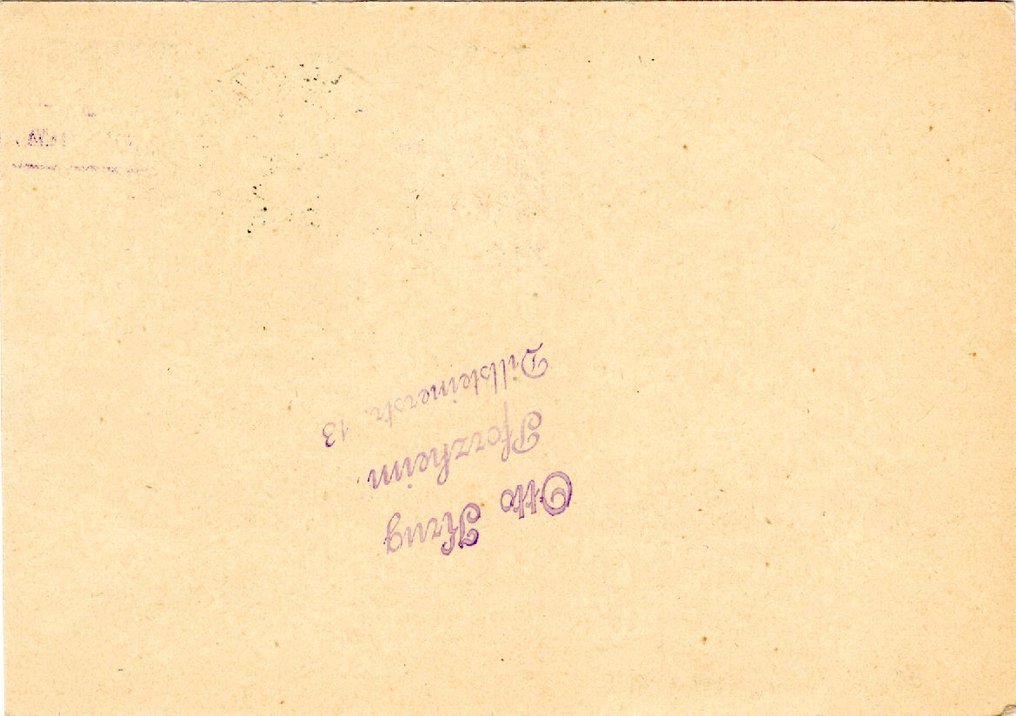 Otto Krug
Pforzheim.
Dillsteinerstr. 13